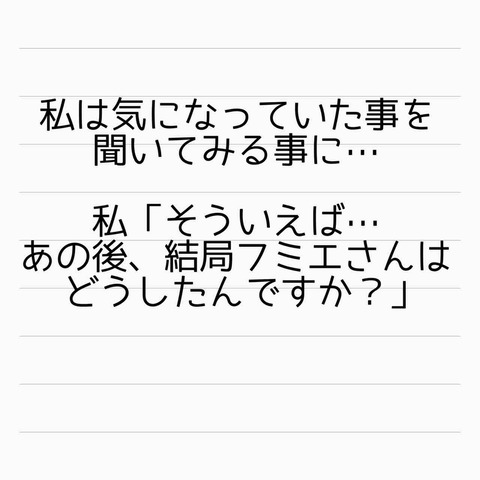 私は気になっていた事を
聞いてみる事に…
私「そういえば…
あの後、結局フミエさんは
どうしたんですか？」